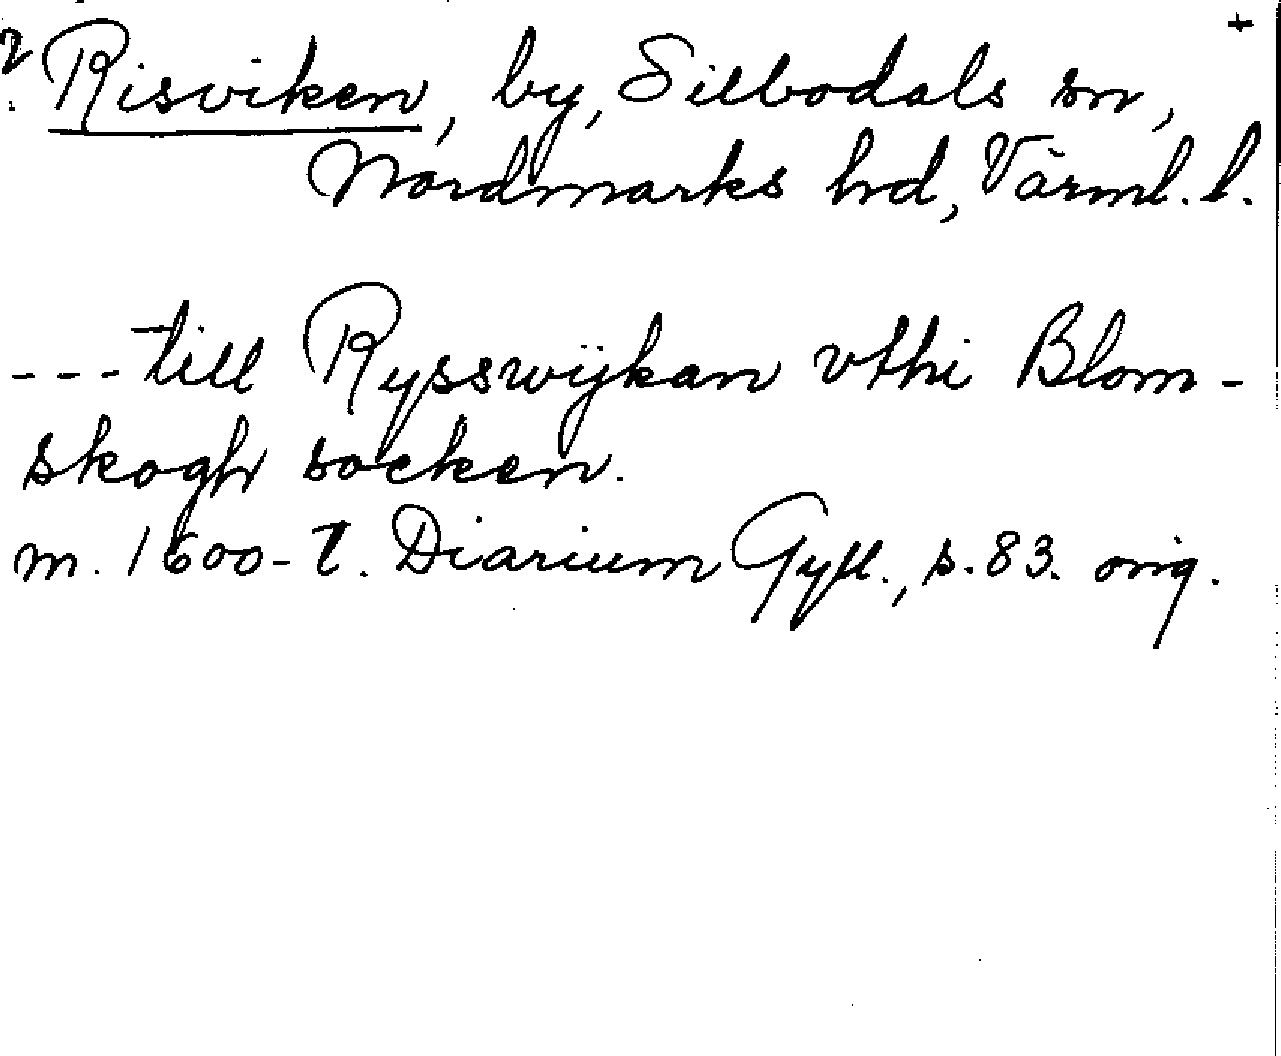 ? Risviken, by, Silbodals sn, +
Nordmarks hd, Värml. l.
--- till Rysswijkan vthi Blom-
skogh socken.
m. 1600-t. Diarium Gyll., s. 83. orig.